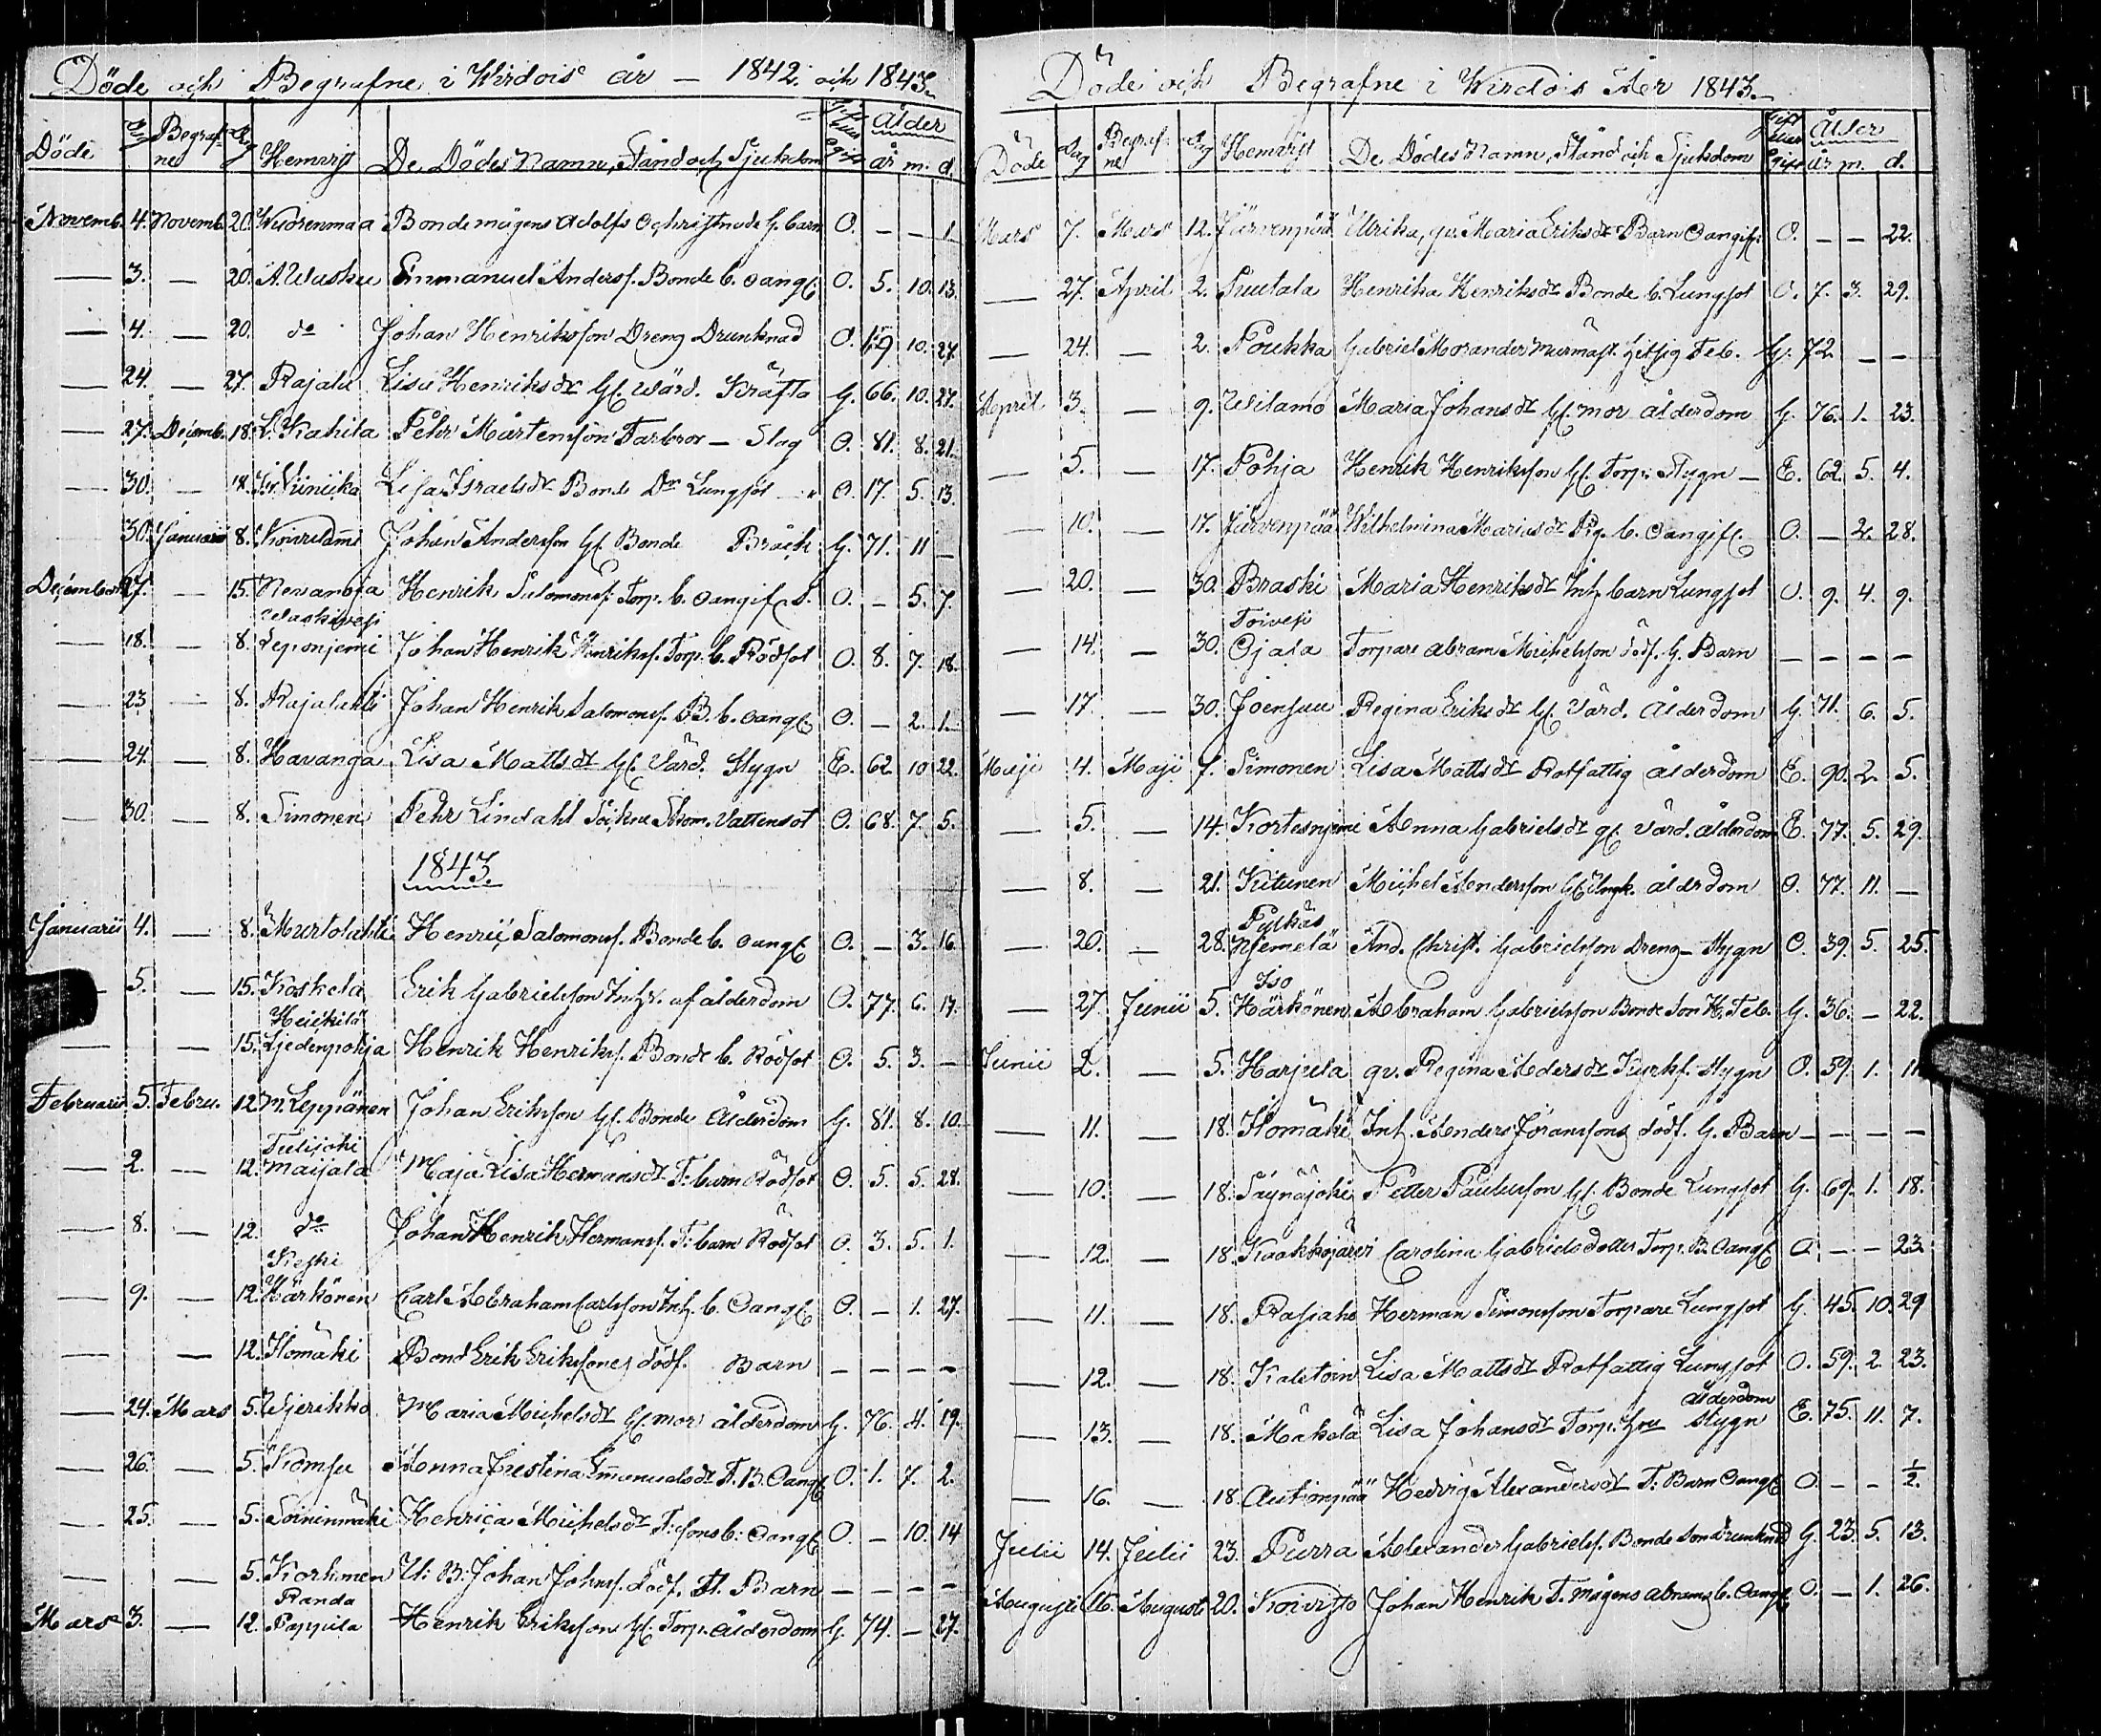 Döde och Begrafne i Wirdois år — 1842. och 1843.
Döde Dag Begrafne Dag Hemvist De Dödes Namn, Stånd och Sjukdom Gift eller Ogift Ålder år m. d.
Novemb. 4. Novemb. 20. Wuorenmaa Bondemågens Adolfs Ochristnade G. barn O. — — 1.
— 3. — 20. A. Wasku Emmanuel Anders s. Bonde b. oangif. O. 5. 10. 13.
— 4. — 20. do Johan Henriksson Dreng Drunknad O. 19 10. 27.
— 24. — 27. Rajala Lisa Henriksdr Gl. Wärd. Kräfta G. 66. 10. 27.
— 27. Decemb. 18. L. Kahila Pehr Mårtensson Farbror — Slag O. 81. 8. 21.
— 30. — 18. Liisa Israelsdr Bonde Dr Lungsot O. 17. 5. 13.
30. Januarii 8. Johan Andersson Gl. Bonde Bråck G. 71. 11 —
December 27. — 15. Henrik Salomons s. Torp. b. oangif. O. — 5. 7.
Waskivesi
— 18. — 8. Leponjemi Johan Henrik Henrikss. Torp. b. Rödsot O. 8. 7. 18.
— 23 — 8. Rajalahti Johan Henrik Salomons s. B. b. oangif. O. — 2. 1.
— 24. — 8. Havanga Lisa Mattsdr Gl. Värd. Stygn E. 62. 10 22.
— 30. — 8. Simonen Pehr Lindahl Sockne Skom. Vattensot O. 68. 7. 5.
1843.
Januarii 4. — 8. Murtolahti Henric Salomons s. Bonde b. oangif. O. — 3. 16.
— 5. — 15. Koskela Erik Gabrielsson Inh. af ålderdom O. 77. 6. 17.
Heickilä
— — 15. Ljedenpohja Henrik Henrikss. Bonde b. Rödsot O. 5. 3. —
Februarii 5. Febru. 12. M. Leppänen Johan Eriksson Gl. Bonde Ålderdom G. 81. 8. 10.
Tulijoki
— 2. — 12. Maijala Maja Lisa Hermansdr T. barn Rödsot O. 5. 5. 28.
— 8. — 12. do Johan Henrik Hermans s. T. barn Rödsot O. 3. 5. 1.
Keski
— 9. — 12. Härkönen Carl Abraham Carlsson Inh. b. Oangif. O. — 1. 27.
— — 12. Ilomäki Bond Erik Erikssones dödf. Barn — — — —
— 24. Mars 5. Wjerikko Maria Michelsdr Gl. mor ålderdom G. 76. 4. 19.
— 26. — 5. Komsu Anna Justina Emmanuelsdr T. B. Oangif. O. 1. 7. 2.
— 25. — 5. Soininmäki Henrica Michelsdr T. sons b. Oangif. O. — 10. 14
— — 5. Korhonen U. B. Johan Johns s. Dödf. Fl. Barn — — — —
Randa
Mars 3. — 12. Pappila Henrik Eriksson Gl. Torp. Ålderdom G. 74. — 27.
Döde och Begrafne i Wirdois År 1843.
Döde Dag Begrafne Dag Hemvist De Dödes Namn, Stånd och Sjukdom Gift eller Ogift Ålder år m. d.
Mars 7. Mars 12. Järvenpää Ulrika, qv. Maria Eriksdr Barn Oangif. O. — — 22.
— 27. April 2. Puutala Henrika Henriksdr Bonde b. Lungsot O. 7. 3. 29.
— 24. — 2. Poukka Gabriel Morander Murmäst. Hetsig Feb. G. 72. — —
April 3. — 9. Uulamo Maria Johansdr Gl. mor ålderdom G. 76. 1. 23.
— 5. — 17. Pohja Henrik Henriksson Gl. Torp. Stygn — E. 62. 5. 4.
— 10. — 17. Järvenpää Wilhelmina Mariasdr Pig. b. Oangif. O. — 2. 28.
— 20. — 30. Braski Maria Henriksdr Inh. barn Lungsot O. 9. 4. 9.
Toivesi
— 14. — 30. Ojala Torpare Abram Michelsson dödf. G. Barn — — — —
— 17. — 30. Joensuu Regina Eriksdr Gl. Värd. Ålderdom G. 71. 6. 5.
Maji 4. Maji 7. Simonen Lisa Mattsdr Rotfattig ålderdom E. 90. 2. 5.
— 5. — 14. Kortesnjemi Anna Gabrielsdr gl. Värd. ålderdom E. 77. 5. 29.
— 8. — 21. Kitunen Michel Andersson ålderdom O. 77. 11. —
Pylkäs
— 20. — 28. Njemelä And. Christ. Gabrielsson Dreng — Stygn O. 39. 5. 25.
Iso
— 27. Junii 5. Härkönen Abraham Gabrielsson Bonde Son H. Feb. G. 36. — 22.
Junii 2. — 5. Harjula qv. Regina Andersdr Kyrkf. Stygn O. 59. 1. 11.
— 11. — 18. Ilomäki Inh. Anders Göranssons dödf. G. Barn — — — —
— 10. — 18. Säynäjoki Petter Paulusson Gl. Bonde Lungsot G. 69. 1. 18.
— 12. — 18. Kaakkojärvi Carolina Gabrielsdotter Torp. B. Oangif. O. — — 23
— 11. — 18. Rajaaho Herman Simonsson Torpare Lungsot G. 45. 10. 29
— 12. — 18. Kaletoin Lisa Mattsdr Rotfattig Lungsot O. 59. 2. 23.
ålderdom
— 13. — 18. Mäkelä Lisa Johansdr Torp. hru Stygn E. 75. 11. 7.
— 16. — 18. Autionpää Hedvig Alexandersdr T. Barn Oangif. O. — — ½.
Julii 14. Julii 23. Purra Alexander Gabriels s. Bonde Son Drunknad G. 23. 5. 13.
Augusti 16. Augusti 20. Koivisto Johan Henrik T. Mågens Abrams b. Oangif. O. — 1. 26.